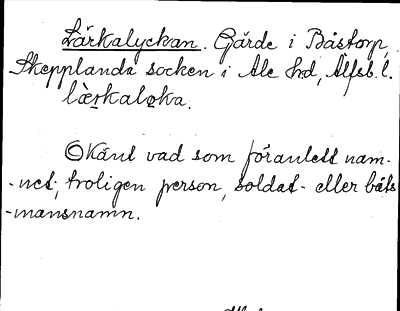 Lärkalyckan. Gärde i Båstorp,
Skepplanda socken i Ale hd, Älfsb. l.
læ̀rkaløka.
Okänt vad som föranlett nam-
-net; troligen person, soldat- eller båts
-mansnamn.